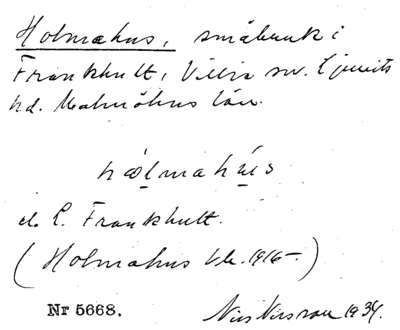 Holmahus, småbruk i
Frankhult, Villie sn. Ljunits
hd. Malmöhus län.
hålmahús
el. L. Frankhult.
(Holmahus 1916–)
Nr 5668.
Nils 1934.